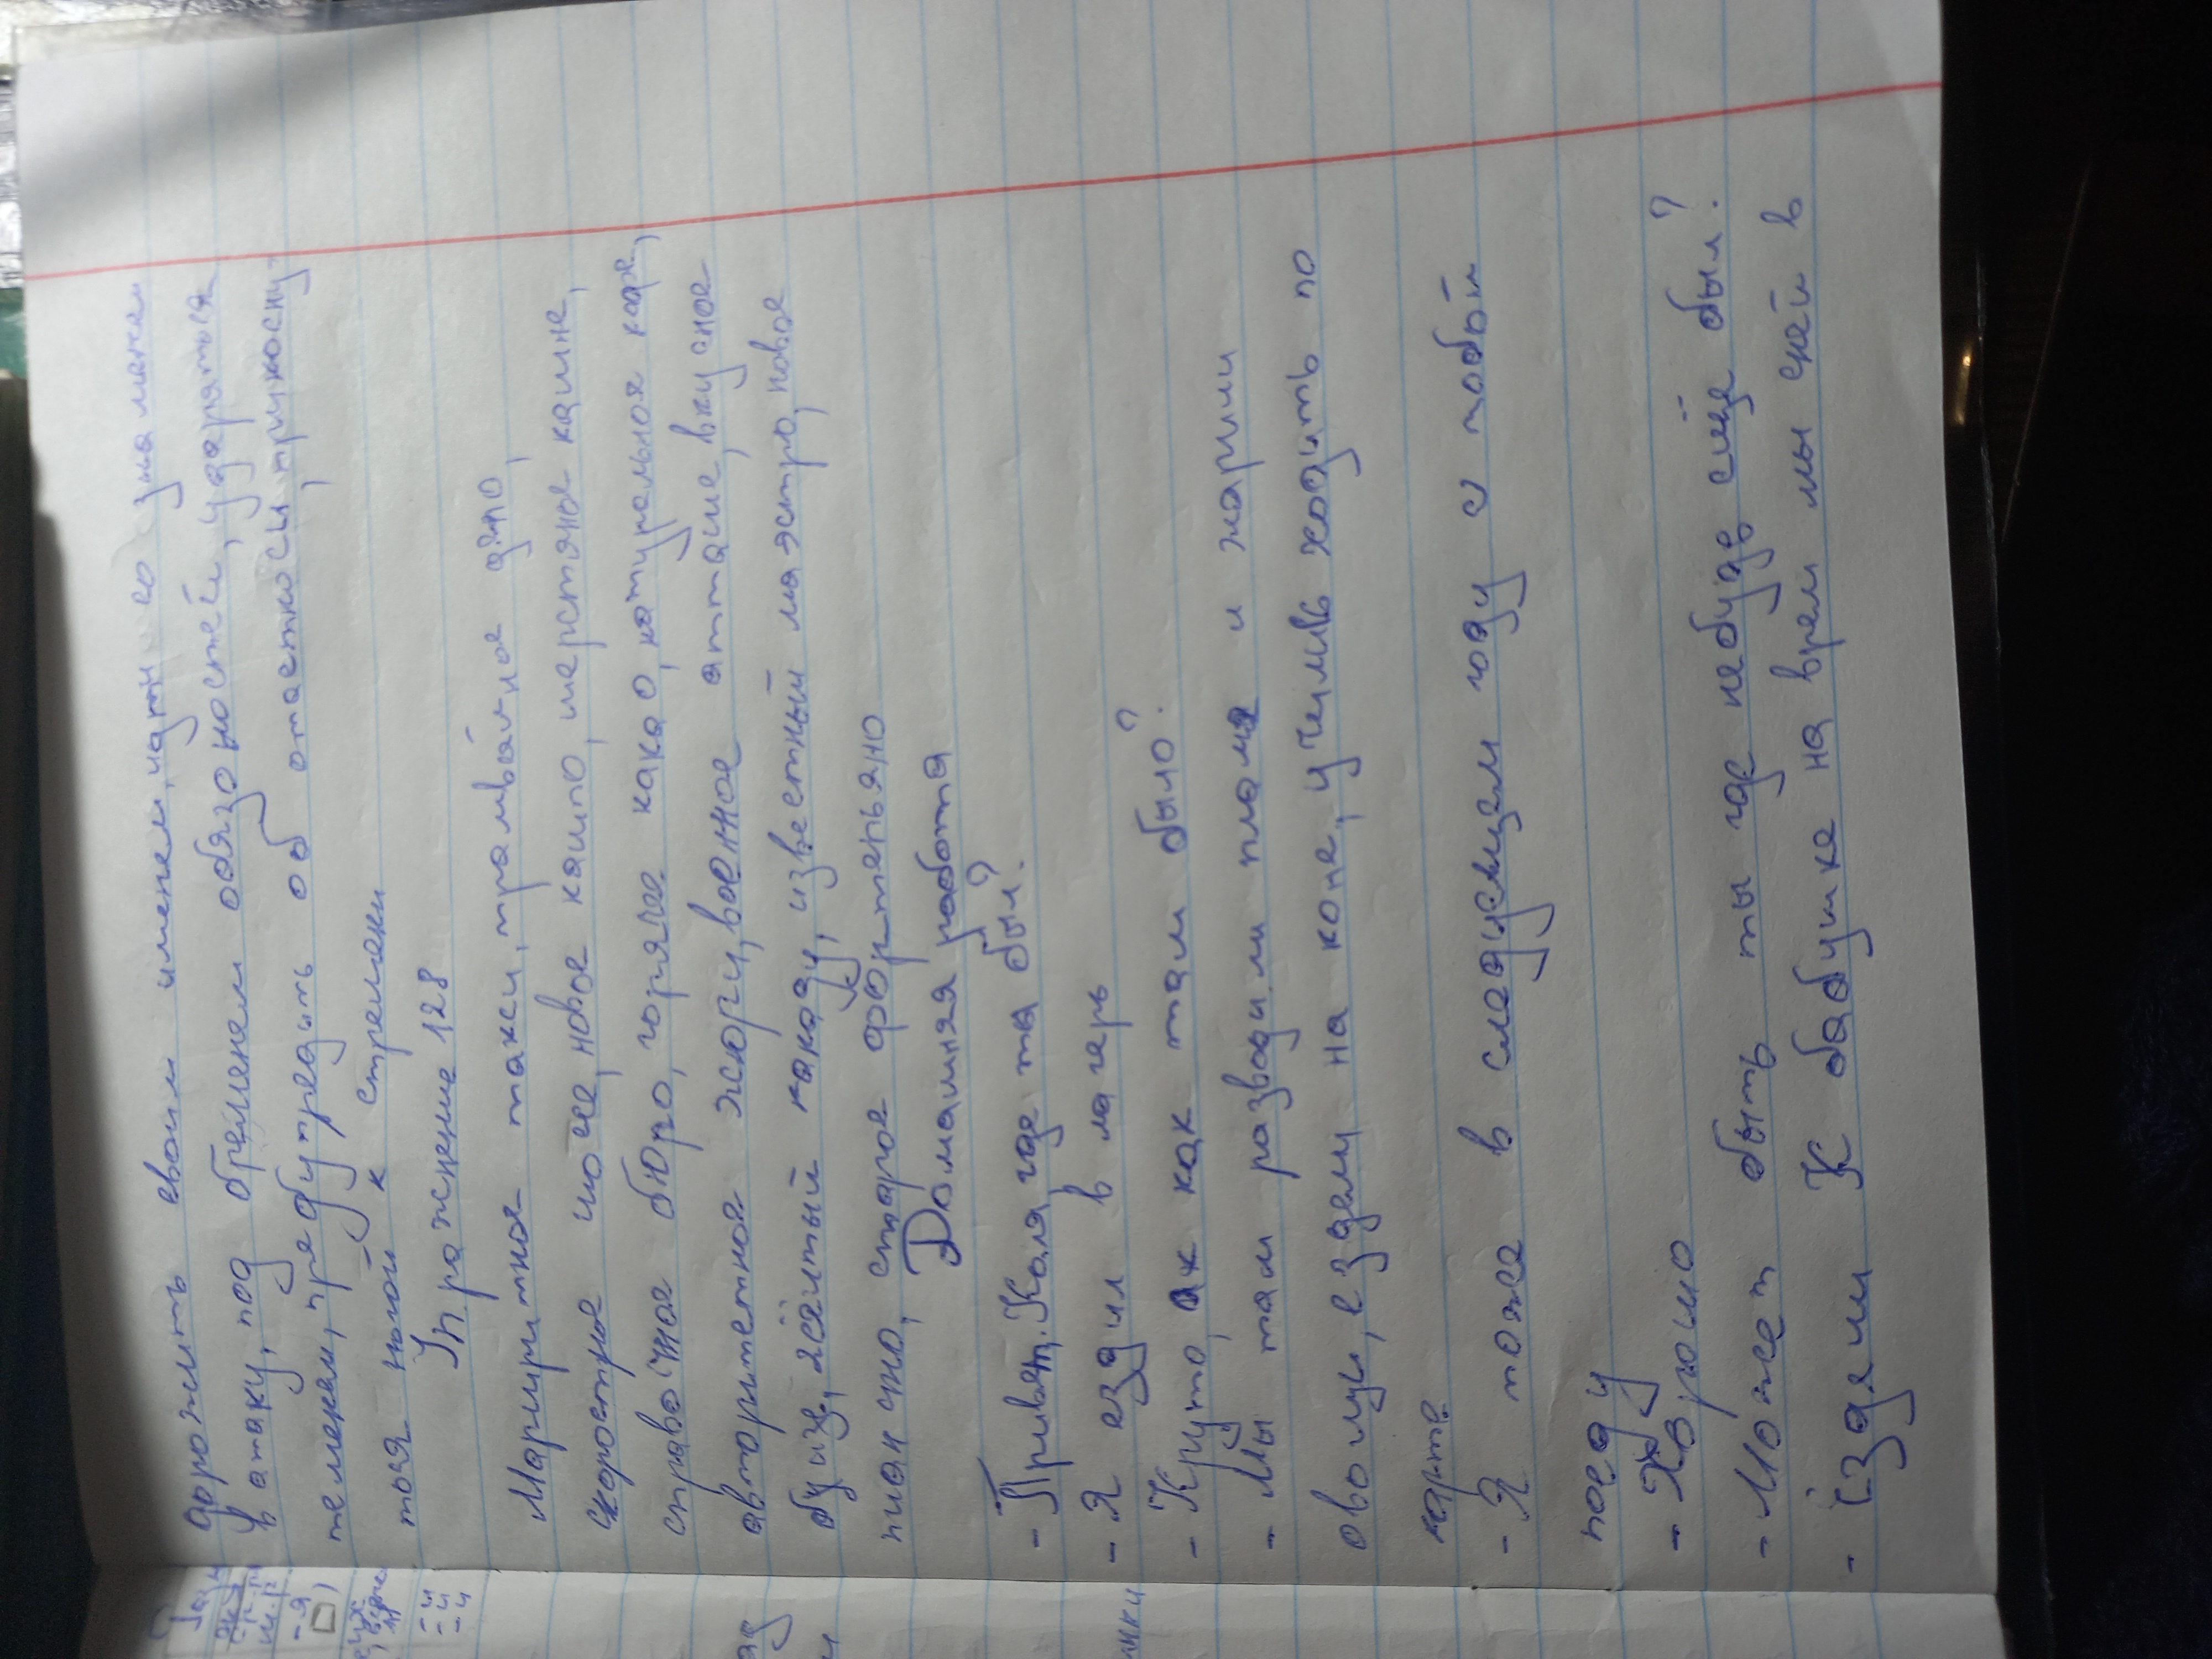 дорожить своим именем, идти со знаменем
в атаку, под бременем обязоностей, ударяться
теменем, предупредить об отаетности, прикосну-
тоя ныой к стремени
Упражнение 128
Маршритное такси, трамвайное дэпо,
скоростное шосе, новое кашпо, шерстяное кашне,
справочное бюро, горячее какао, натуральное кофе,
авторитетное жюри, военное атташе, вкусное
безе, жёлтый какаду, известный маэстро, новое
пианино, старое фортепьяно
Домашняя работа
- Привет. Коля где та был?
- Я ездил в лагерь
- Круто, ак как там было?
- Мы там разводили пламя и жарили
овощи, ездели на коне, училив ходить по
карте
- Я тоже в следуемщем году с тобой
поеду
- Хорошо
- Может быть ты где небудв ещё был?
- Ездели К бабушке на врем мы сней в